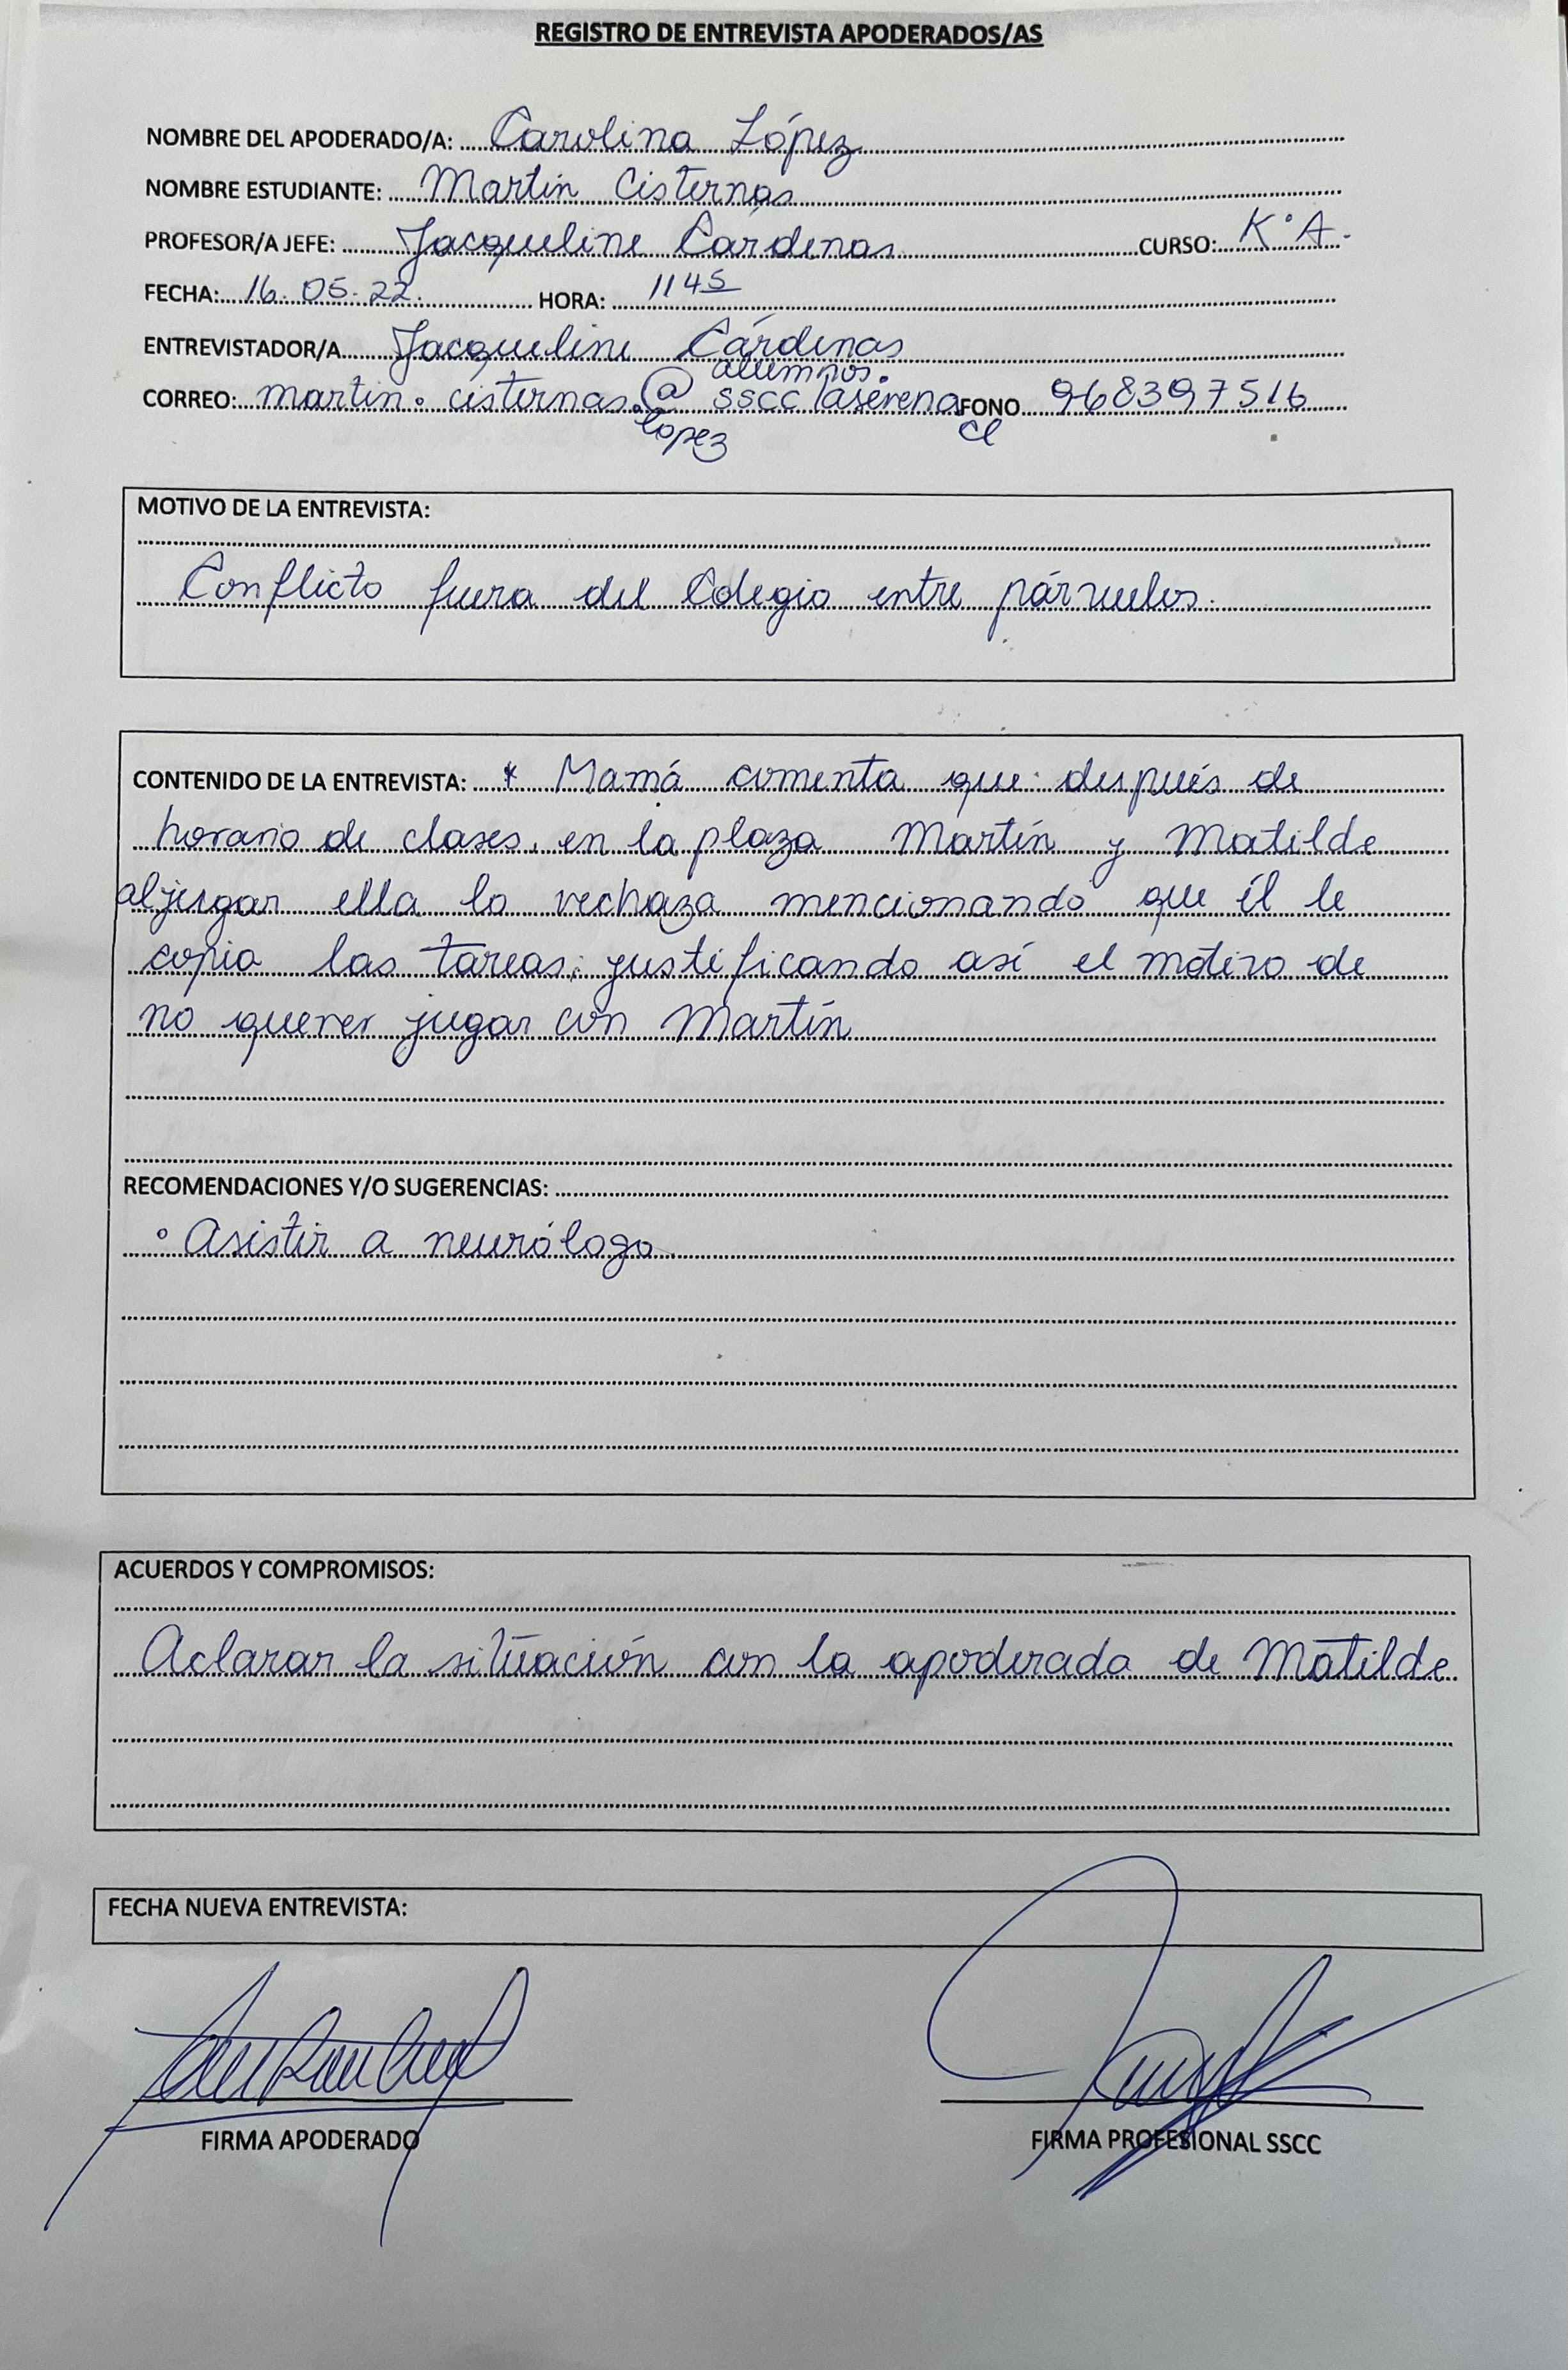 REGISTRO DE ENTREVISTA APODERADOS/AS
NOMBRE DEL APODERADO/A: Carolina López
NOMBRE ESTUDIANTE: Martín Cisternas
PROFESOR/A JEFE: Jacqueline Cárdenas CURSO: K°A.
FECHA: 16.05.22. HORA: 1145
ENTREVISTADOR/A Jacqueline Cárdenas
alumnos.
CORREO: martin.cisternas.@sscclaserena FONO 968397516
lopez cl
MOTIVO DE LA ENTREVISTA:
Conflicto fuera del Colegio entre párvulos.
CONTENIDO DE LA ENTREVISTA: * Mamá comenta que después de
horario de clases, en la plaza Martín y Matilde
al jugar ella lo rechaza mencionando que él le
copia las tareas, justificando así el motivo de
no querer jugar con Martín
RECOMENDACIONES Y/O SUGERENCIAS:
° Asistir a neurólogo
ACUERDOS Y COMPROMISOS:
Aclarar la situación con la apoderada de Matilde
FECHA NUEVA ENTREVISTA:
FIRMA APODERADO FIRMA PROFESIONAL SSCC